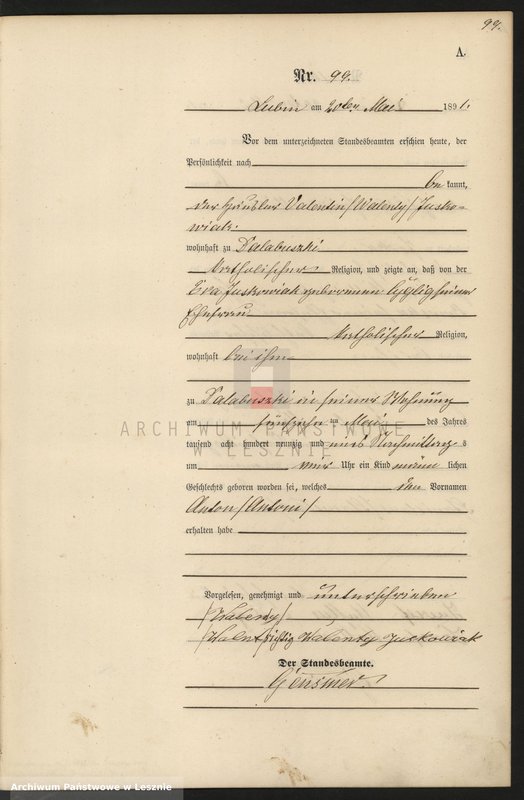 99.
A.
Nr. 99.
Lubin am 20ten Mai 1891.
Vor dem unterzeichneten Standesbeamten erschien heute, der
Persönlichkeit nach
be kannt,
der Häusler Valentin /Walenty/ Jusko-
wiak
wohnhaft zu Dalabuszki
katholischer Religion, und zeigte an, daß von der
Eva Juskowiak geborenen seiner
Ehefrau
katholischer Religion,
wohnhaft bei ihm
zu Dalabuszki in seiner Wohnung
am fünfzehn ten Mai des Jahres
tausend acht hundert neunzig und eins Nachmittags
um Uhr ein Kind männ lichen
Geschlechts geboren worden sei, welches den Vornamen
Anton /Antoni/
erhalten habe
Vorgelesen, genehmigt und unterschrieben
/Walenty/
Walenty Juskowiak
Der Standesbeamte.
Gensmer
ARCHIWUM PAŃSTWOWE
W LESZNIE
Archiwum Państwowe w Lesznie